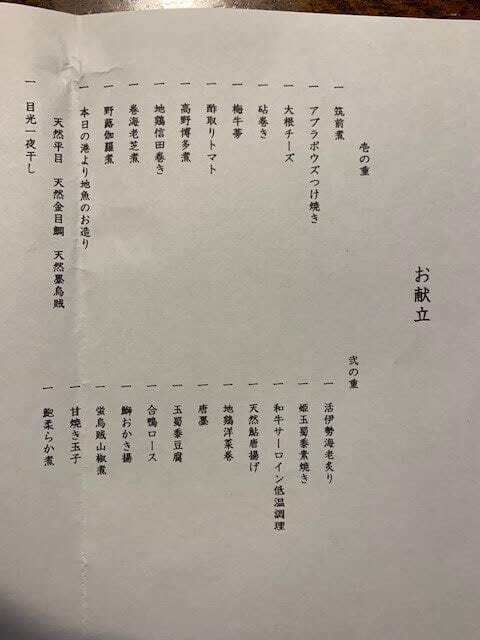 お献立
壱の重
一 筑前煮
一 アブラボウズつけ焼き
一 大根チーズ
一 砧巻き
一 梅牛蒡
一 酢取りトマト
一 高野博多煮
一 地鶏信田巻き
一 巻海老芝煮
一 野蕗伽羅煮
一 本日の港より地魚のお造り
天然平目 天然金目鯛 天然墨烏賊
一 目光一夜干し
弐の重
一 活伊勢海老炙り
一 姫玉蜀黍素焼き
一 和牛サーロイン低温調理
一 天然鮎唐揚げ
一 地鶏洋菜巻
一 唐墨
一 玉蜀黍豆腐
一 合鴨ロース
一 鰤おかき揚
一 蛍烏賊山椒煮
一 甘焼き玉子
一 鮑柔らか煮